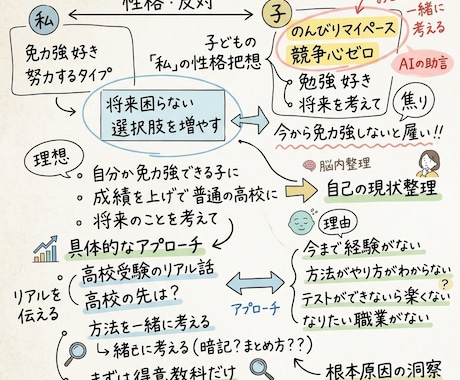 性格・反対
私
子
免力強 好き
努力するタイプ
子どもの
「私」の性格把想
のんびりマイペース
競争心ゼロ
一緒に
考える
AIの助言
勉強 好き
将来を考えて
焦り
将来困らない
選択肢を増やす
今から免力強しないと雇い!!
理想
自分か免力強できる子に
成績を上げで普通の高校に
将来のことを考て
脳内整理
自己の現状整理
理由
今まで経験がない
方法がやり方がわからない
テストができないら楽くない
?
なりたい職業がない
具体的なアプローチ
リアルを
伝える
高校受験のリアル話
高校の先は?
アプローチ
方法を一緒に考える
緒に考える(暗記?まとめ方??)
まずは得意教科だけ
根本原因の洞察